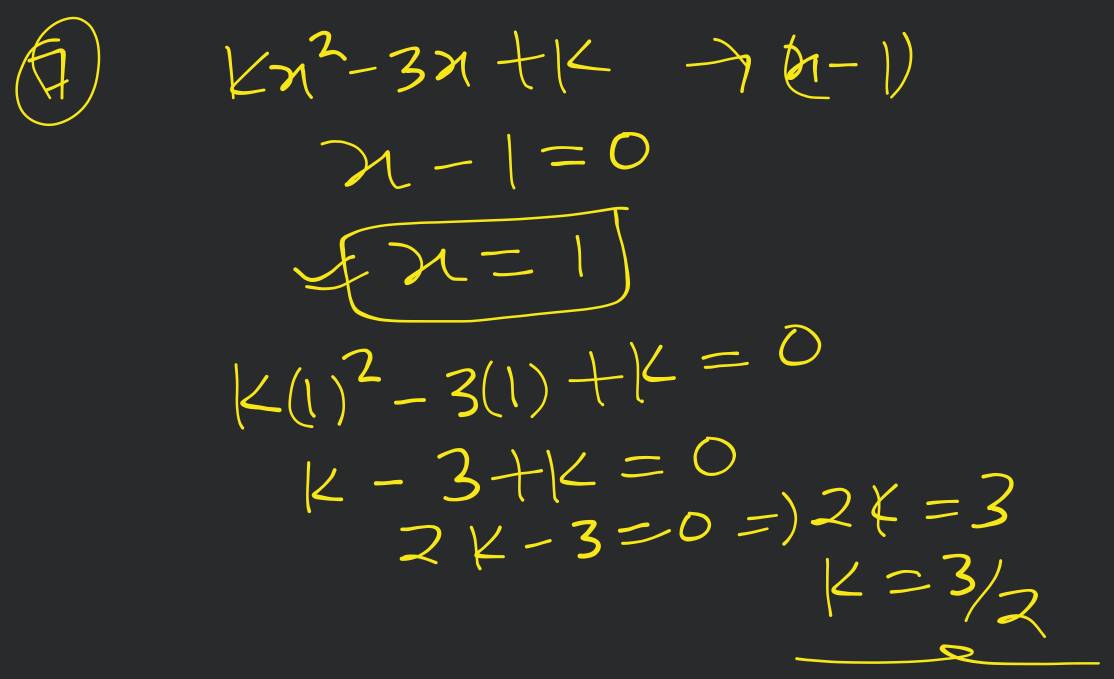 7 kx² - 3x + k → (x - 1)
x - 1 = 0
x = 1
k(1)² - 3(1) + k = 0
k - 3 + k = 0
2k - 3 = 0 => 2k = 3
k = 3/2